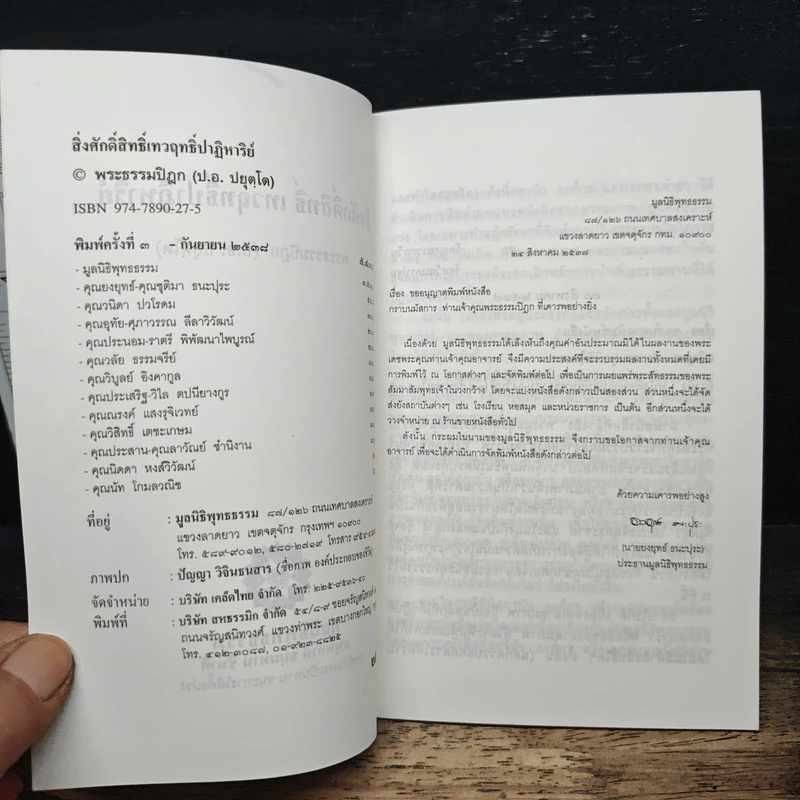 สิ่งศักดิ์สิทธิ์เทวฤทธิ์ปาฏิหาริย์
© พระธรรมปิฎก (ป.อ. ปยุตฺโต)
ISBN 974-7890-27-5
พิมพ์ครั้งที่ ๓ - กันยายน ๒๕๓๘
- มูลนิธิพุทธธรรม
- คุณยงยุทธ์-คุณชุติมา ธนะปุระ
- คุณวนิดา ปวโรดม
- คุณอุทัย-ศุภาวรรณ ลีลาวิวัฒน์
- คุณประนอม-ราตรี พิพัฒนาไพบูรณ์
- คุณวลัย ธรรมจรีย์
- คุณวิบูลย์ อิงคากูล
- คุณประเสริฐ-วิไล ตปนียางกูร
- คุณณรงค์ แสงรุจิเวทย์
- คุณวิสิทธิ์ เตชะเกษม
- คุณประสาน-คุณลาวัณย์ ชำนิงาน
- คุณนิดดา หงส์วิวัฒน์
- คุณนัท โกมลวณิช
ที่อยู่ : มูลนิธิพุทธธรรม ๘๗/๑๒๖ ถนนเทศบาลสงเคราะห์
แขวงลาดยาว เขตจตุจักร กรุงเทพฯ ๑๐๙๐๐
โทร. ๕๘๙-๙๐๑๒, ๕๘๐-๒๗๑๙ โทรสาร
ภาพปก : ปัญญา วิจินธนสาร (ชื่อภาพ องค์ประกอบของชีวิต)
จัดจำหน่าย : บริษัท เคล็ดไทย จำกัด โทร. ๒๒๕-๙๕๓๖-๔๐
พิมพ์ที่ : บริษัท สหธรรมิก จำกัด ๕๔/๘-๙ ซอยจรัญสนิทวงศ์
ถนนจรัญสนิทวงศ์ แขวงท่าพระ เขตบางกอกใหญ่
โทร. ๔๑๒-๓๐๘๗, ๐๑-๙๒๓-๘๘๒๕
มูลนิธิพุทธธรรม
๘๗/๑๒๖ ถนนเทศบาลสงเคราะห์
แขวงลาดยาว เขตจตุจักร กทม. ๑๐๙๐๐
๒๔ สิงหาคม ๒๕๓๗
เรื่อง ขออนุญาตพิมพ์หนังสือ
กราบนมัสการ ท่านเจ้าคุณพระธรรมปิฎก ที่เคารพอย่างยิ่ง
เนื่องด้วย มูลนิธิพุทธธรรมได้เล็งเห็นถึงคุณค่าอันประมาณมิได้ในผลงานของพระ
เดชพระคุณท่านเจ้าคุณอาจารย์ จึงมีความประสงค์ที่จะรวบรวมผลงานทั้งหมดที่เคยมี
การพิมพ์ไว้ ณ โอกาสต่างๆ และจัดพิมพ์ต่อไป เพื่อเป็นการเผยแพร่พระสัทธรรมของพระ
สัมมาสัมพุทธเจ้าในวงกว้าง โดยจะแบ่งหนังสือดังกล่าวเป็นสองส่วน ส่วนหนึ่งจะได้จัด
ส่งยังสถาบันต่างๆ เช่น โรงเรียน หอสมุด และหน่วยราชการ เป็นต้น อีกส่วนหนึ่งจะได้
วางจำหน่าย ณ ร้านขายหนังสือทั่วไป
ดังนั้น กระผมในนามของมูลนิธิพุทธธรรม จึงกราบขอโอกาสจากท่านเจ้าคุณ
อาจารย์ เพื่อจะได้ดำเนินการจัดพิมพ์หนังสือดังกล่าวต่อไป
ด้วยความเคารพอย่างสูง
(นายยงยุทธ ธนะปุระ)
ประธานมูลนิธิพุทธธรรม